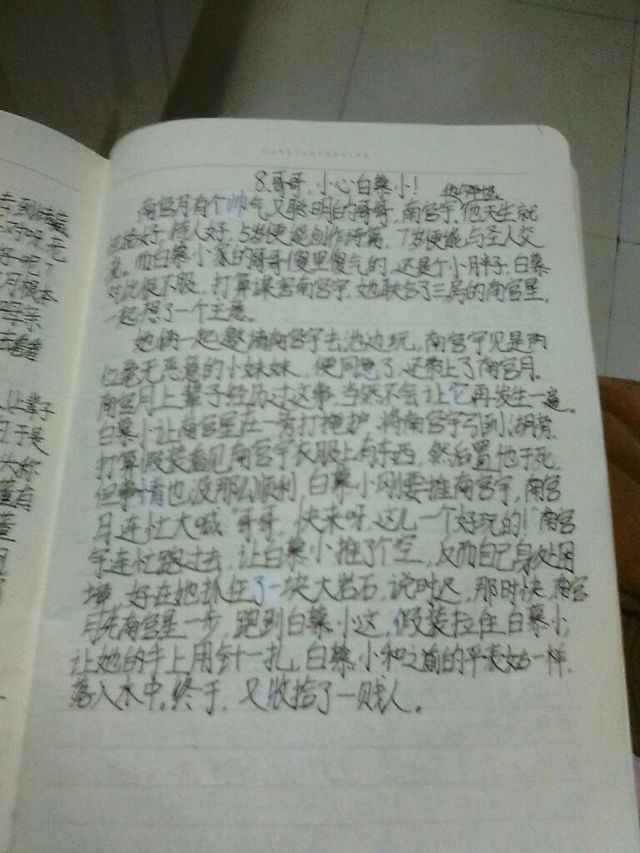 8.哥哥,小心白慕小!
南宫月有个帅气又聪明的哥哥,南宫宇,他天生就
好,待人好,5岁便能创作诗篇,7岁便能与圣人交
而白慕小家的哥哥傻里傻气的,还是个小胖子,白慕
对此很不服,打算谋害南宫宇,她联合了三房的南宫星,
一起想了一个主意。
她俩一起邀请南宫宇去池边玩,南宫宇见是两
位毫无恶意的小妹妹,便同意了,还带上了南宫月。
南宫月上辈子经历过这事,当然不会让它再发生一遍。
白慕小让南宫星在一旁打掩护,将南宫宇引到湖旁,
打算假装看见南宫宇衣服上有东西,然后置他于死,
但事情也没那么顺利,白慕小刚要推南宫宇,南宫
月连忙大喊:哥哥,快来呀,这儿一个好玩的!"南宫
宇连忙跑过去,让白慕小推了个空,反而自己身处困
境,好在她抓住了一块大岩石,说时迟,那时快,南宫
月先南宫星一步,跑到白慕小这,假装拉住白慕小,
让她的手上用针一扎,白慕小和之前的平表如一样,
落入水中,终于,又收拾了一贱人。
去到
对呀,
好呢?
月根本
去看看
让辈子
于是